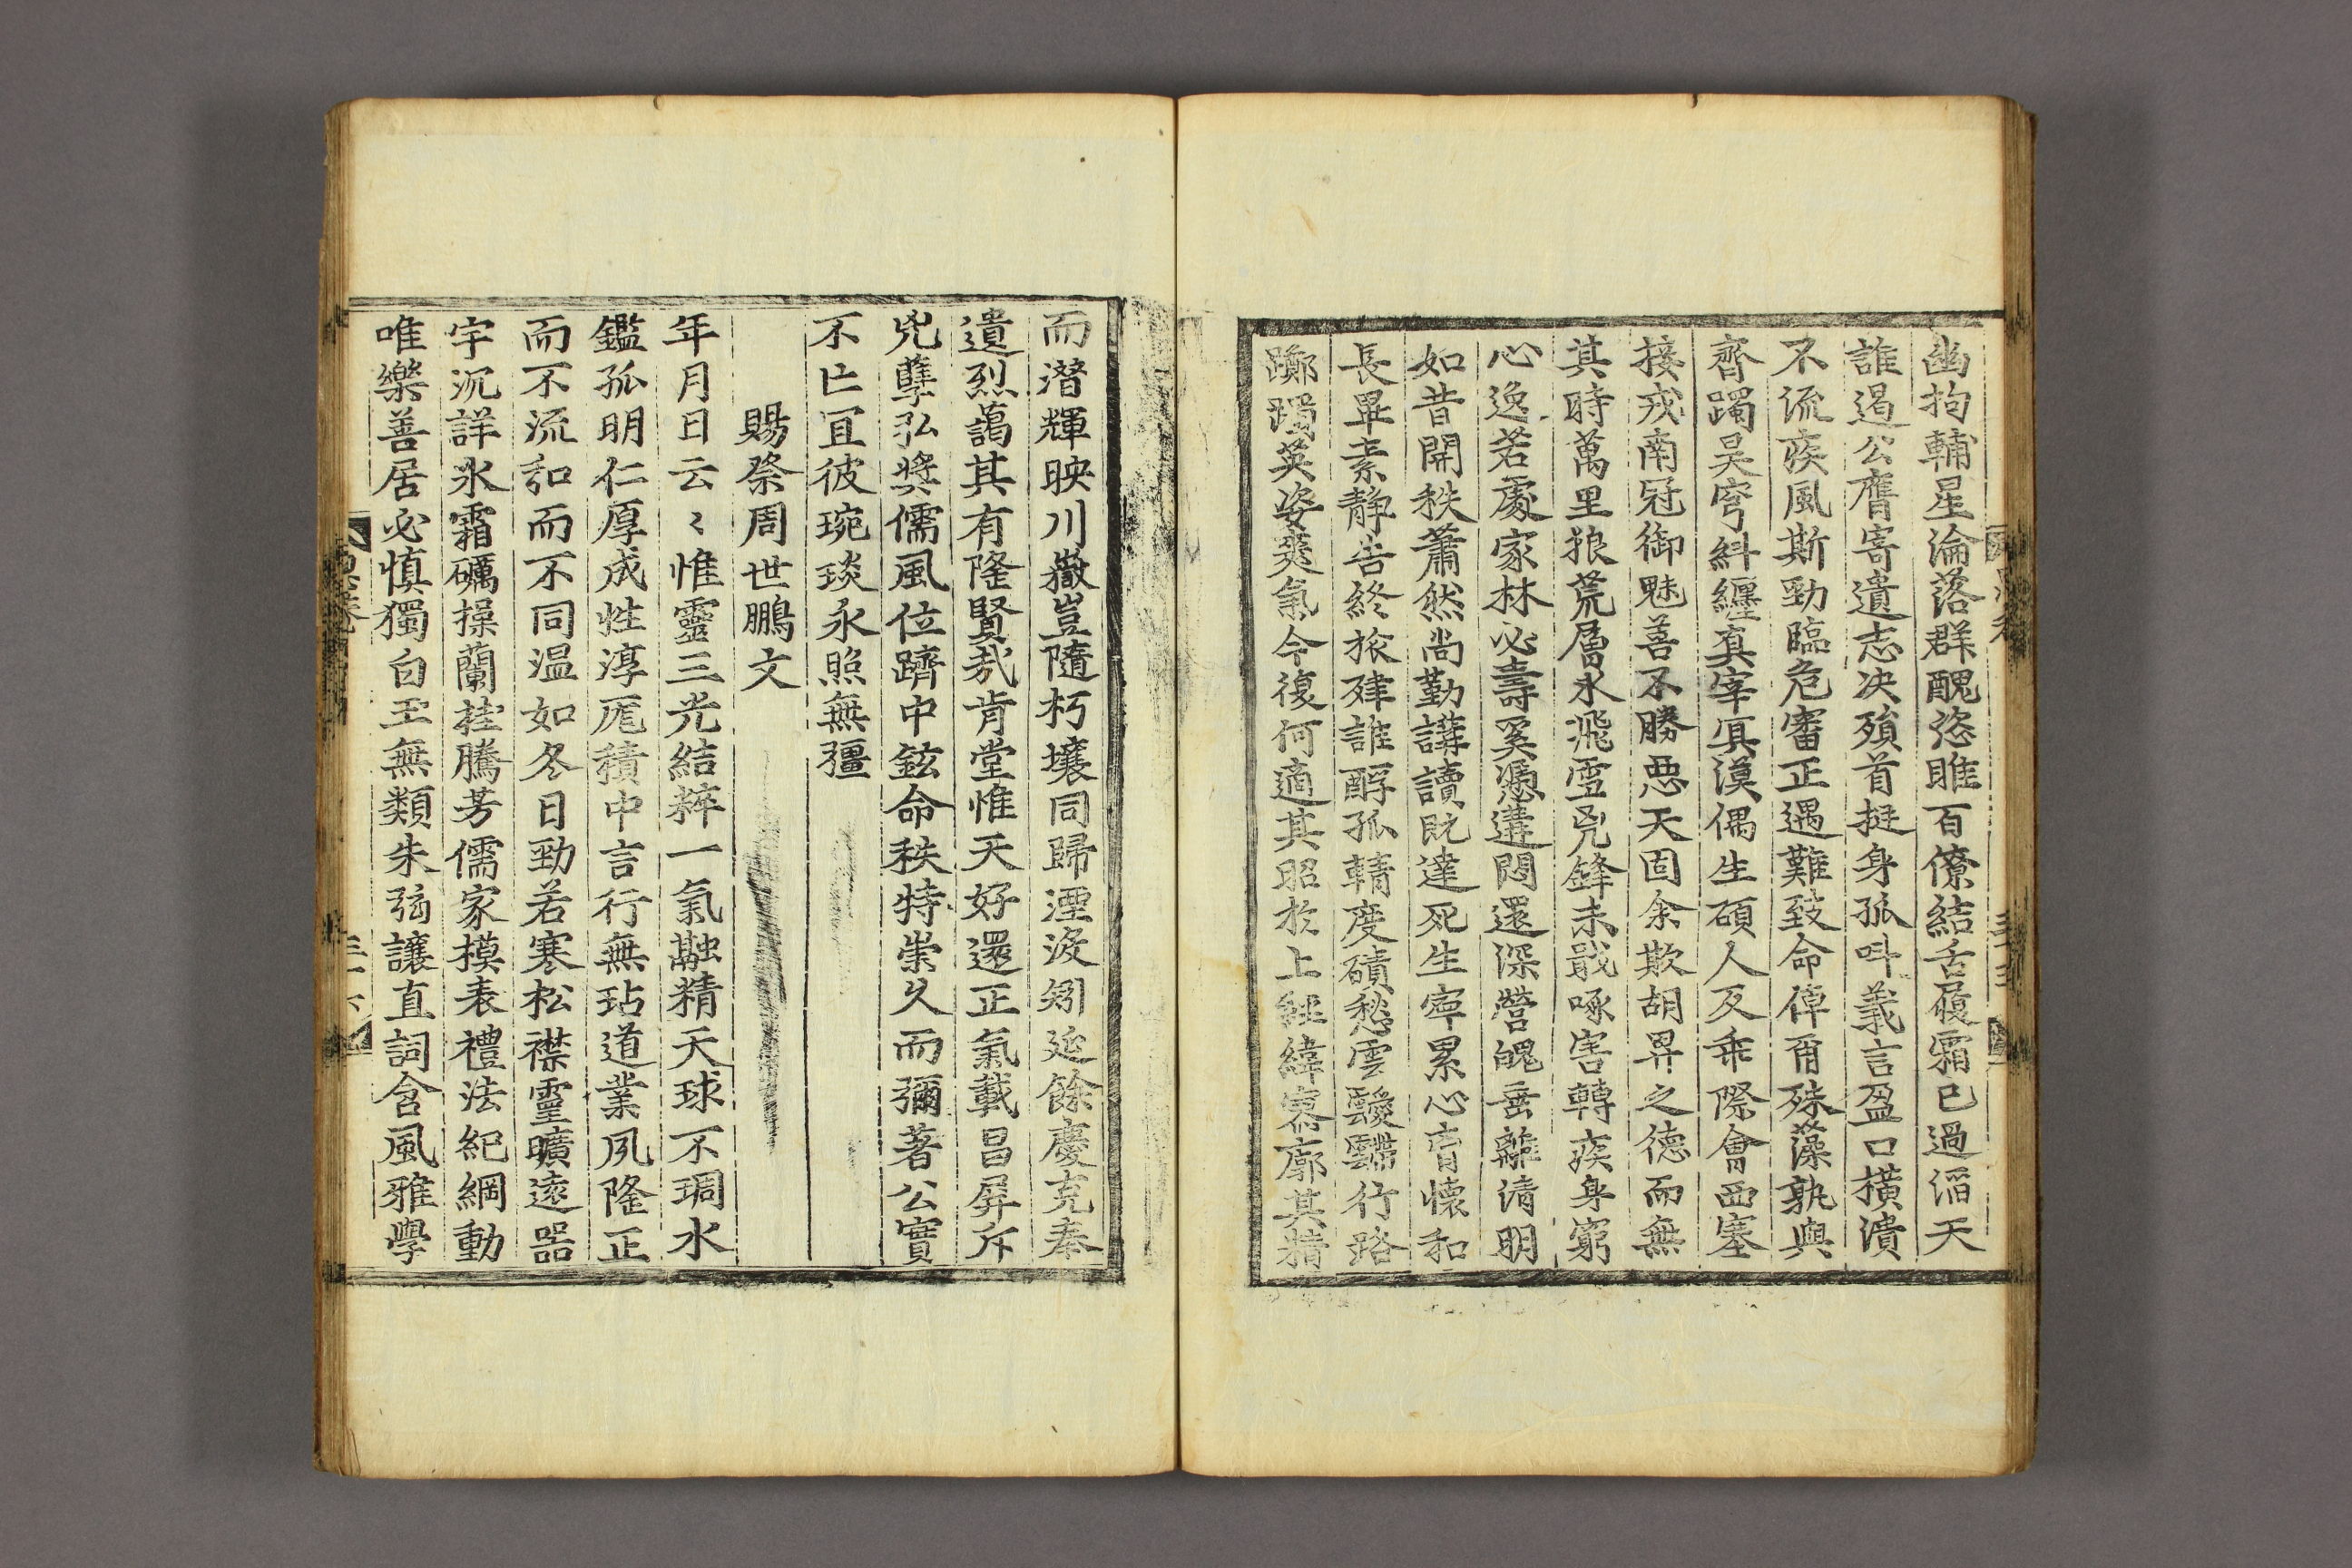 幽拘輔星淪落群醜恣睢百僚結舌履霜已過滔天
誰遏公膺寄遺志决殞首挺身孤呌義言盈口横潰
不流疾風斯勁臨危審正遇難致命倬甭殊藻孰與
齊躅昊穹糾纒眞宰㝠漠偶生碩人反乖際會西塞
接戎南冠御魅善不勝惡天固余欺胡畀之德而無
其時萬里狼荒層氷飛雪兇鋒未戢啄害轉疾身窮
心逸若處家林必壽奚憑遘悶還深營魄岳離淸明
如昔開秩蕭然尚勤講讀旣達死生寧累心育懷和
長畢素静告終旅殡誰酹孤輤度磧愁雲靉䨴行路
躑躅英姿爽氣今復何適其昭於上經緯寥廓其精
而潛輝映川嶽豈隨朽壤同歸湮没矧延餘慶克奉
遺烈藹其有隆賢㢤肯堂惟天好還正氣載昌屏斥
兇孽弘奬儒風位躋中鉉命秩特崇久而彌著公實
不亡冝彼琬琰永照無彊
賜祭周世鵬文
年月日云〻惟靈三光結粹一氣融精天球不琱水
鑑孤明仁厚成性淳厖積中言行無玷道業夙隆正
而不流和而不同温如冬日勁若寒松襟靈曠遠器
宇沉詳氷霜礪操蘭桂騰芳儒家模表禮法紀綱動
唯樂善居必慎獨白玉無類朱弦讓直詞含風雅學